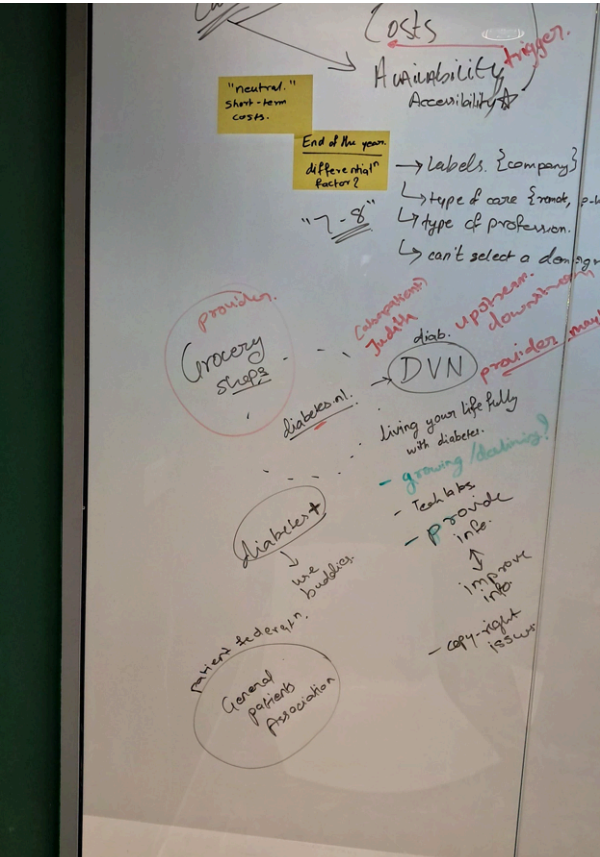 Costs
trigger.
Availability
Accessibility ☆
"neutral."
short-term
costs.
End of the year.
differentialⁿ
factor?
→ Labels. {company}
↳ type of care {remote,
↳ type of profession.
↳ can't select a
"7-8"
provider.
Grocery
shops
Judith
upstream.
downstream
provider
diab.
DVN
diabetes.nl. →
Living your life fully
with diabetes.
- growing/declining?
- Tech labs.
- provide
info.
↕
improve
info.
- copy-right
issues
diabetes+
↓
use
buddies.
patient federatⁿ.
General
patients
Association